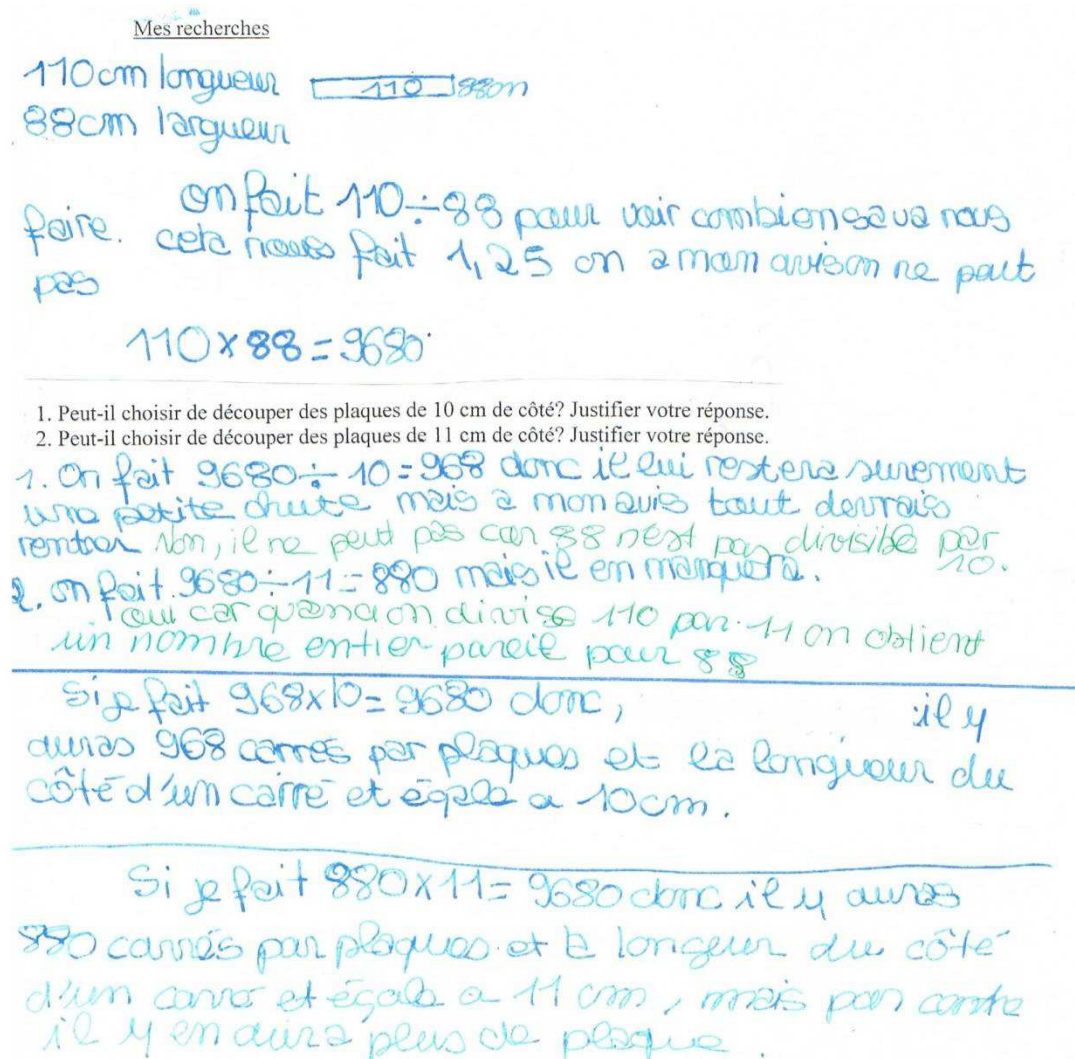 Mes recherches
110cm longueur 110 88cm
88cm largueur
on fait 110÷88 pour voir combion sava nous
faire. cela nous fait 1,25 on a mon avis on ne peut
pas
110×88=9680
1. Peut-il choisir de découper des plaques de 10 cm de côté? Justifier votre réponse.
2. Peut-il choisir de découper des plaques de 11 cm de côté? Justifier votre réponse.
1. On fait 9680÷10=968 donc il lui restera surement
une petite chute mais a mon avis tout devrais
rentrer Non, il ne peut pas car 88 n'est pas divisible par
10.
2. on fait 9680÷11=880 mais il en manquera.
oui car quand on divise 110 par 11 on obtient
un nombre entier pareil pour 88
Si je fait 968×10=9680 donc, il y
auras 968 carrés par plaques et la longueur du
côté d'un carré et égale a 10cm.
Si je fait 880×11=9680 donc il y auras
880 carrés par plaques et la longeur du côté
d'un carré et égale a 11 cm, mais par contre
il y en aura plus de plaque.